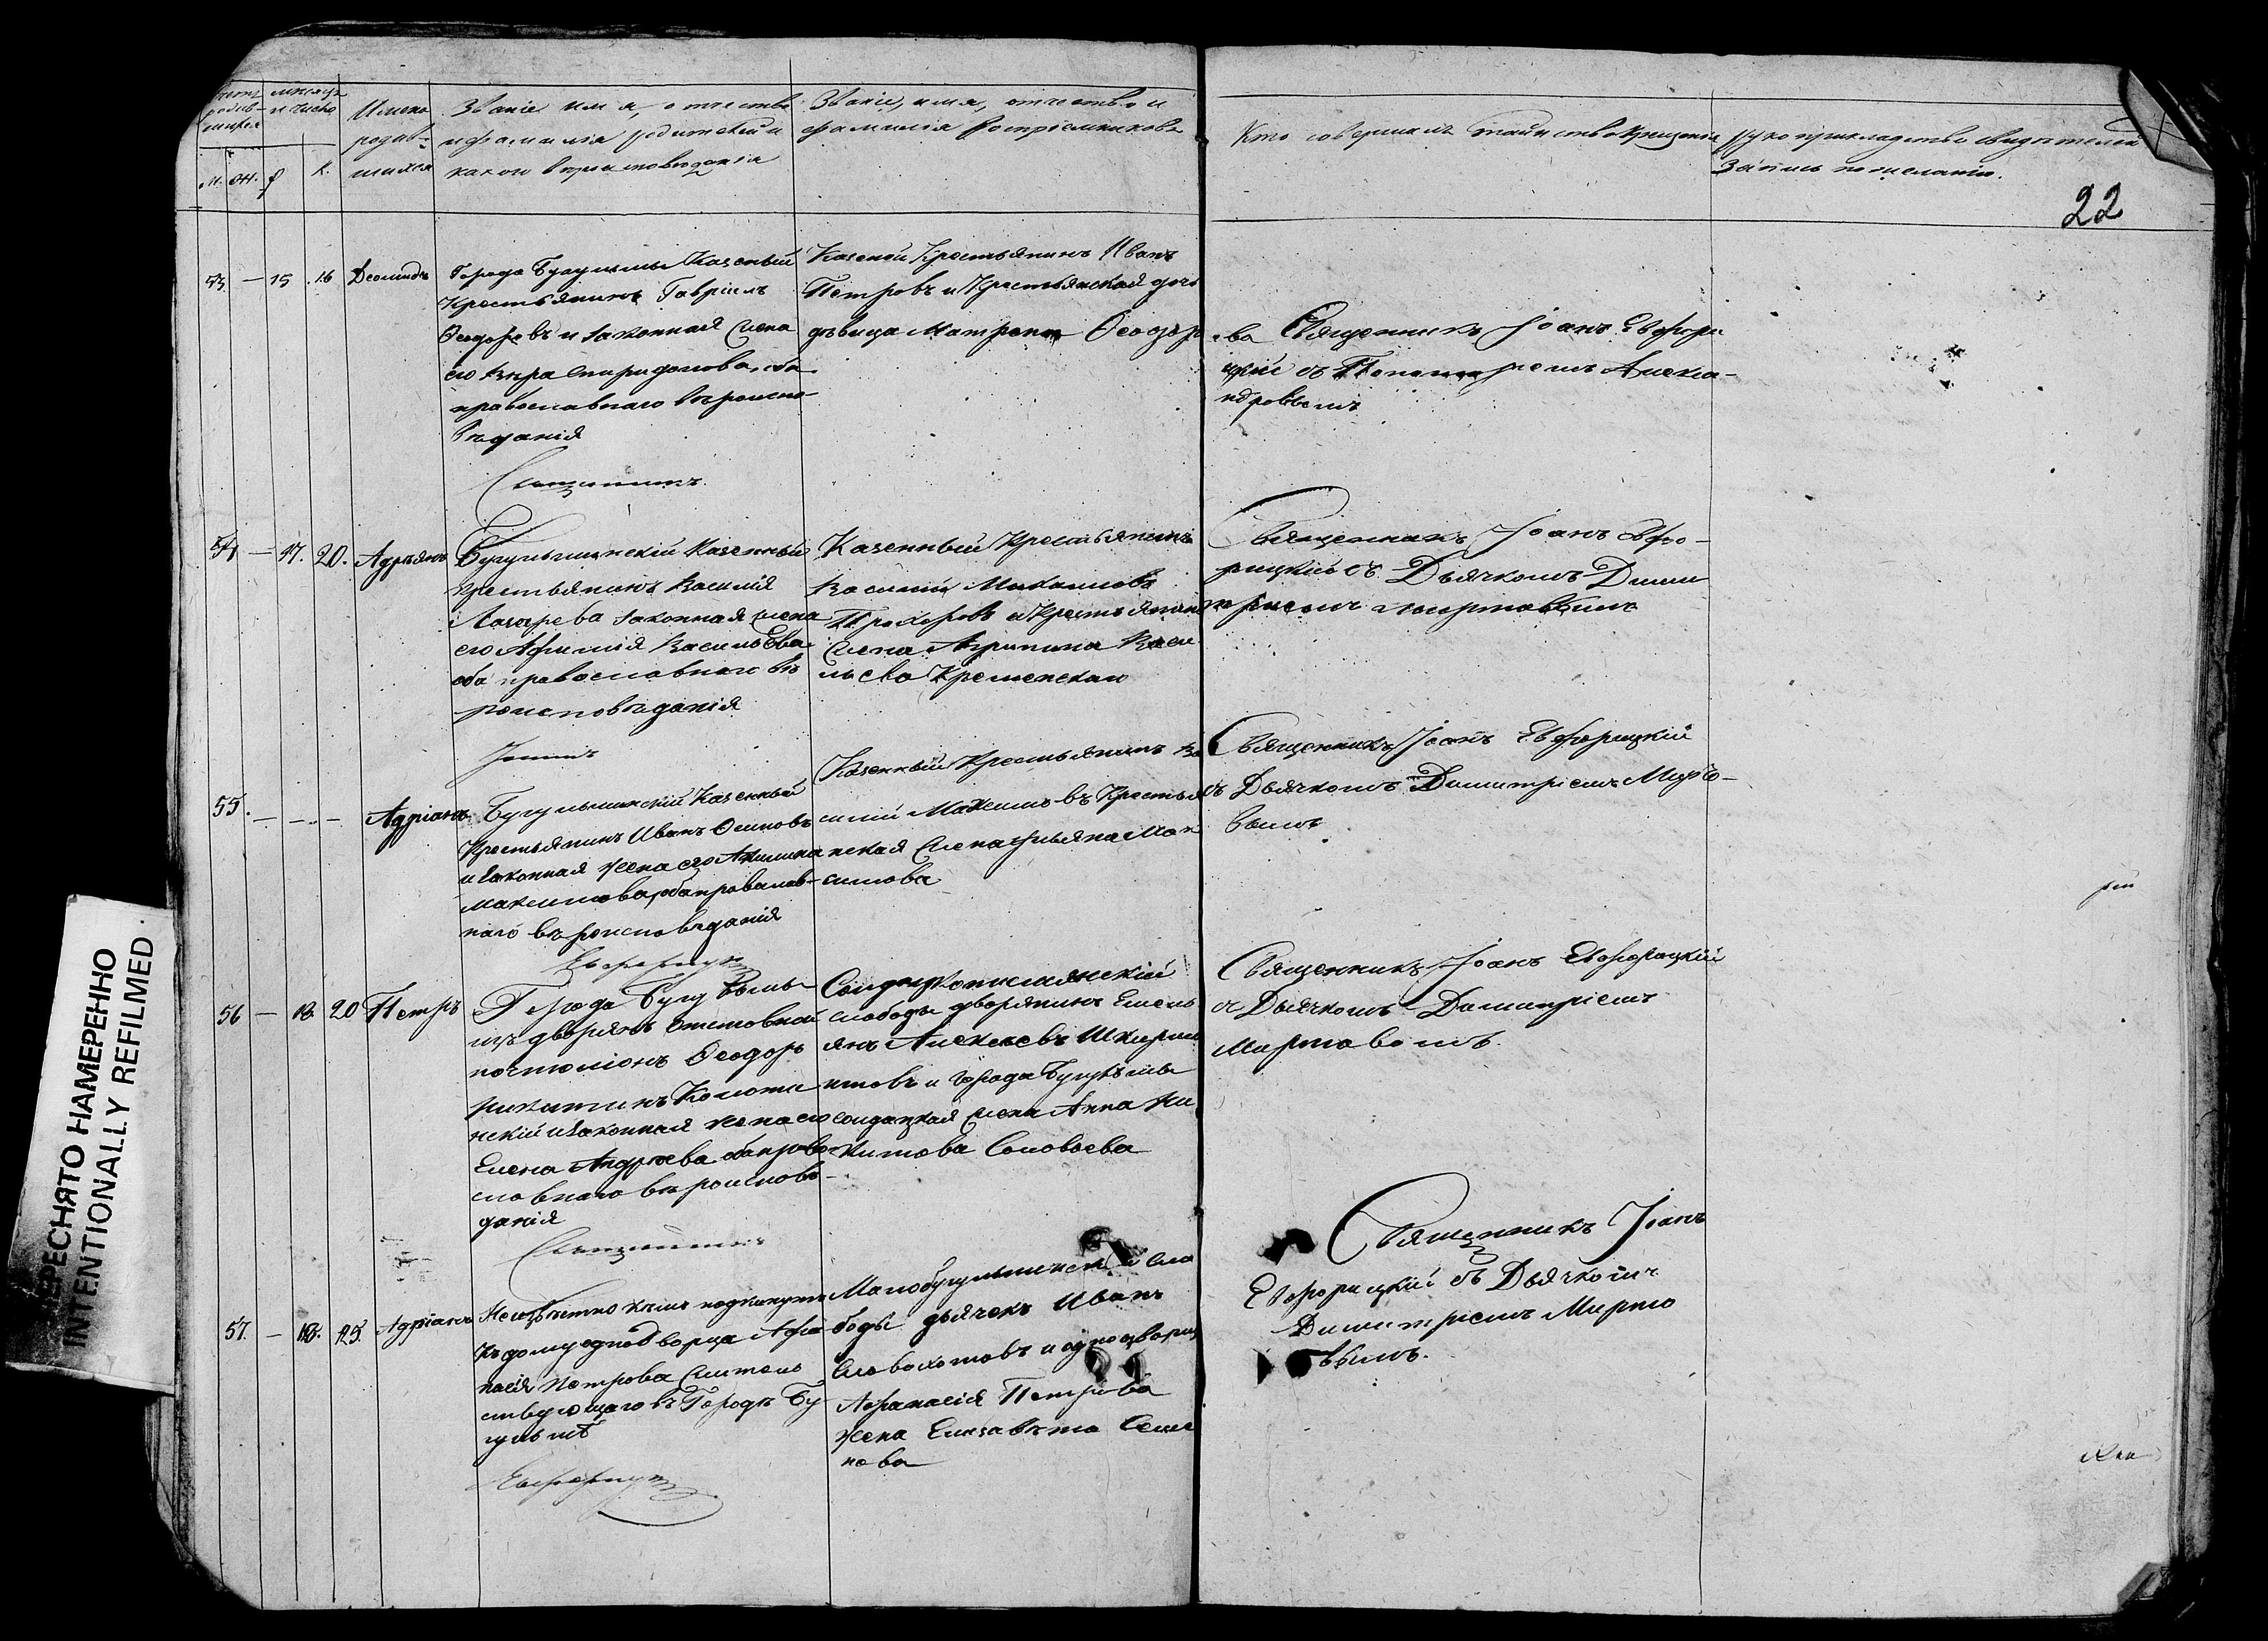 Имена
родив-
шихся
Званіе имя, отчество
и фамилія родителей и
какого вѣроисповеданія
Званіе, имя, отчество и
фамилія воспріемниковъ
Кто совершалъ таинство крещенія
Рукоприкладство свидѣтелей
записи по желанію.
м. ж. р. к.
22
53 — 15 16
Города Бугульмы Казеный
Крестьянинъ Гавріилъ
Ѳедоровъ и законная жена
его Вѣра Спиридонова, оба
православнаго вѣроиспо-
вѣданія
Казеной Крестьянинъ Иванъ
Петровъ и Крестьянская дочь
дѣвица Матрена Ѳеодоро
ва Священникъ Іоанъ Евфори
цкій съ Пономаремъ Алекса-
ндровымъ
Священникъ
54 — 17. 20. Адрьянъ
Бугульминскій Казенный
Крестьянинъ Василій
Лазарева законная жена
его Афимія Васильева
оба православнаго вѣ
роисповѣданія
Казенный Крестьянинъ
Василий
Прохоровъ и Крестьянск
жена Агрипина Васи
льева
Священникъ Іоанъ Евфо-
рицкій съ Дьячкомъ Дими
тріемъ Миртовымъ
Іоаннъ
55. — — — Адріанъ
Бугульминскій Казенный
Крестьянинъ Иванъ Осиповъ
и законная жена его Акилина
Максимова, оба православ-
наго вѣроисповѣданія
Казенный Крестьянинъ Ва
силій Максимовъ Крестья
нская жена Ульяна Мак
симова
Священникъ Іоанъ Евфорицкій
съ Дьячкомъ Димитріемъ Мирто-
вымъ
Евфорицк
56 — 18 20 Петръ
Города Бугульмы
изъ дворянъ отставной
почталіонъ Ѳеодоръ
Никитинъ
нскій и законная жена его
Елена Андреева оба право
славнаго вѣроисповѣ-
данія
слободы дворянинъ Емель
янъ Алексѣевъ
и города Бугульмы
солдацкая жена Анна Ни
китова Соловьева
Священникъ Іоанъ Евфорицкій
съ Дьячкомъ Димитріемъ
Миртовымъ.
Священникъ
57. — 18. 25. Адріанъ
Неизвѣстно кѣмъ подкинутъ
къ дому однодворца Афа
насія Петрова жительс
ствующаго въ Городѣ Бу-
гульмѣ
Малобугульминской сло
боды дьячекъ Иванъ
Словохотовъ и однодворца
Афанасія Петрова
жена Елизавета Семе
нова
Священникъ Іоанъ
Евфорицкій съ Дьячкомъ
Димитріемъ Мирто
вымъ.
Евфорицк
ПЕРЕСНЯТО НАМЕРЕННО
INTENTIONALLY REFILMED